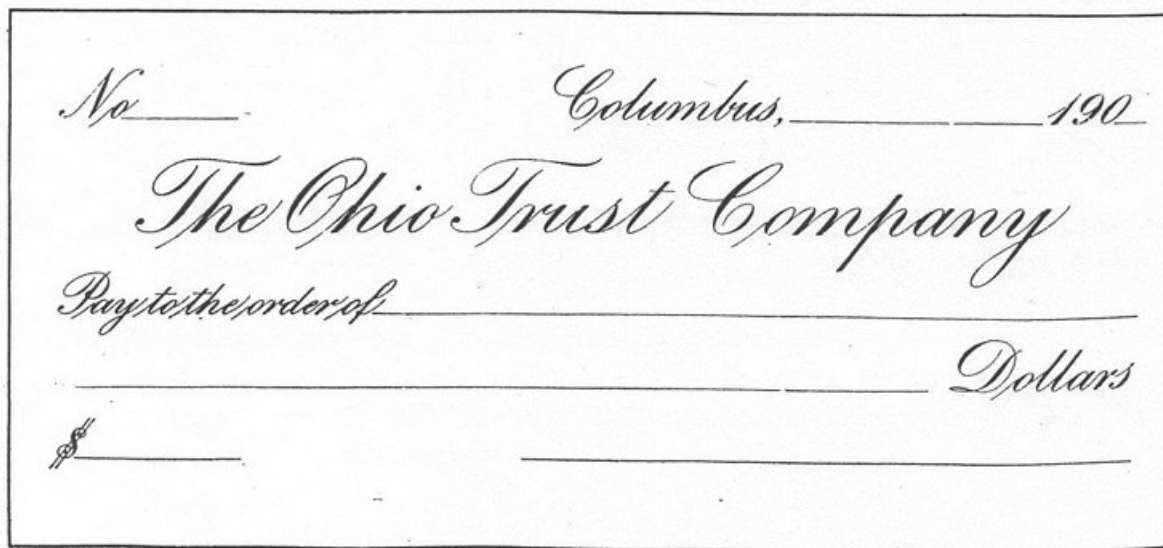 No Columbus, 190
The Ohio Trust Company
Pay to the order of
Dollars
$